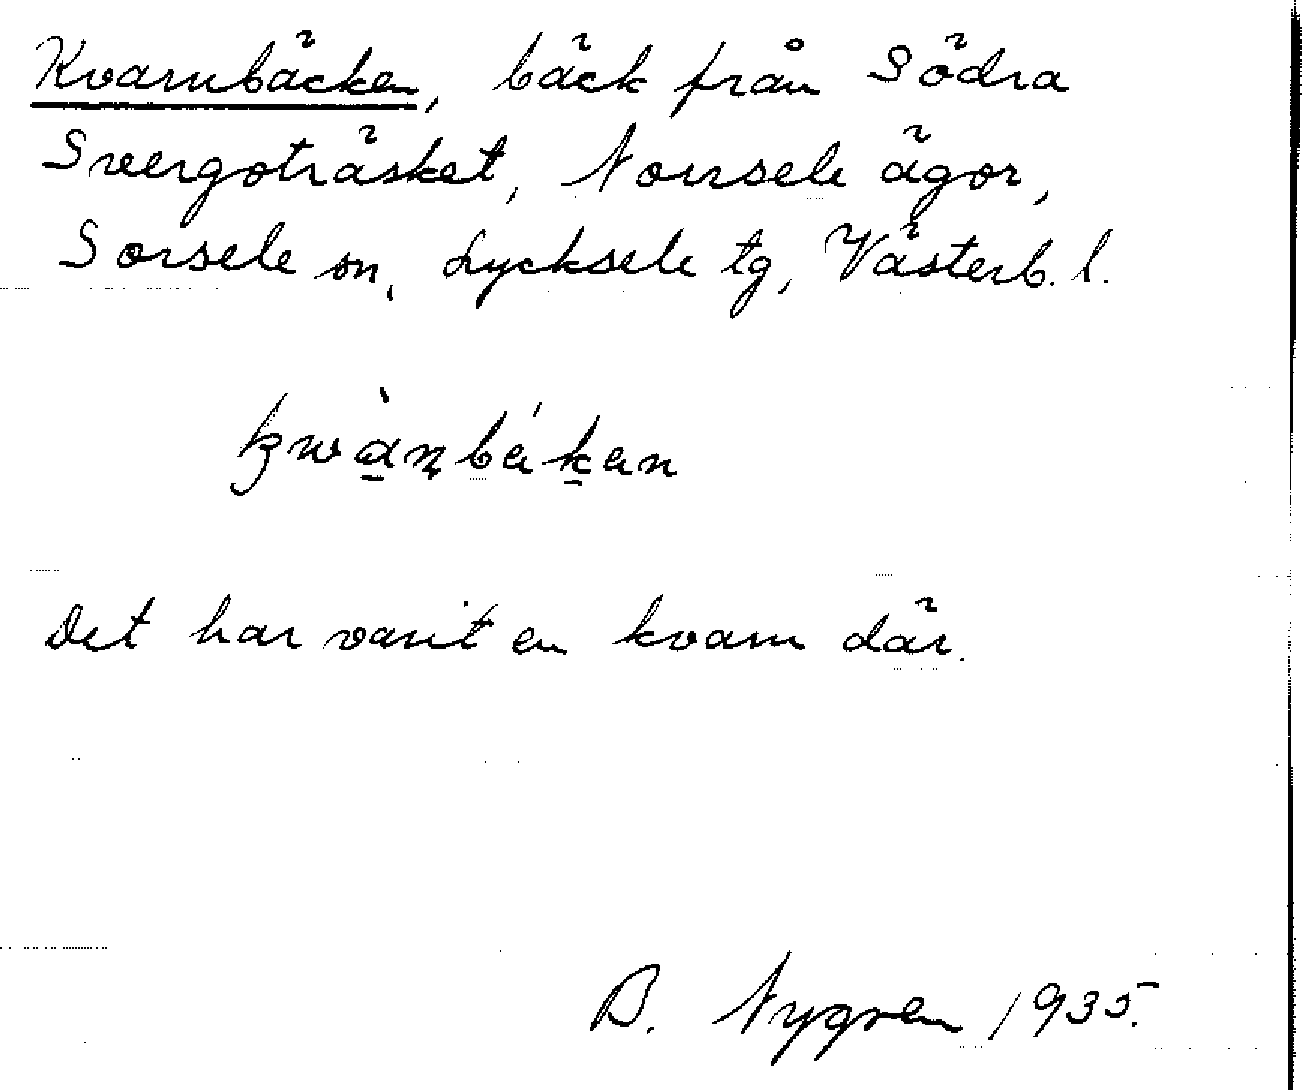 Kvarnbäcken, bäck från Södra
Svergoträsket, Norrsele ägor,
Sorsele sn, Lycksele tg, Västerb. l.
kwànbákan
Det har varit en kvarn där.
B. Nygren 1935.